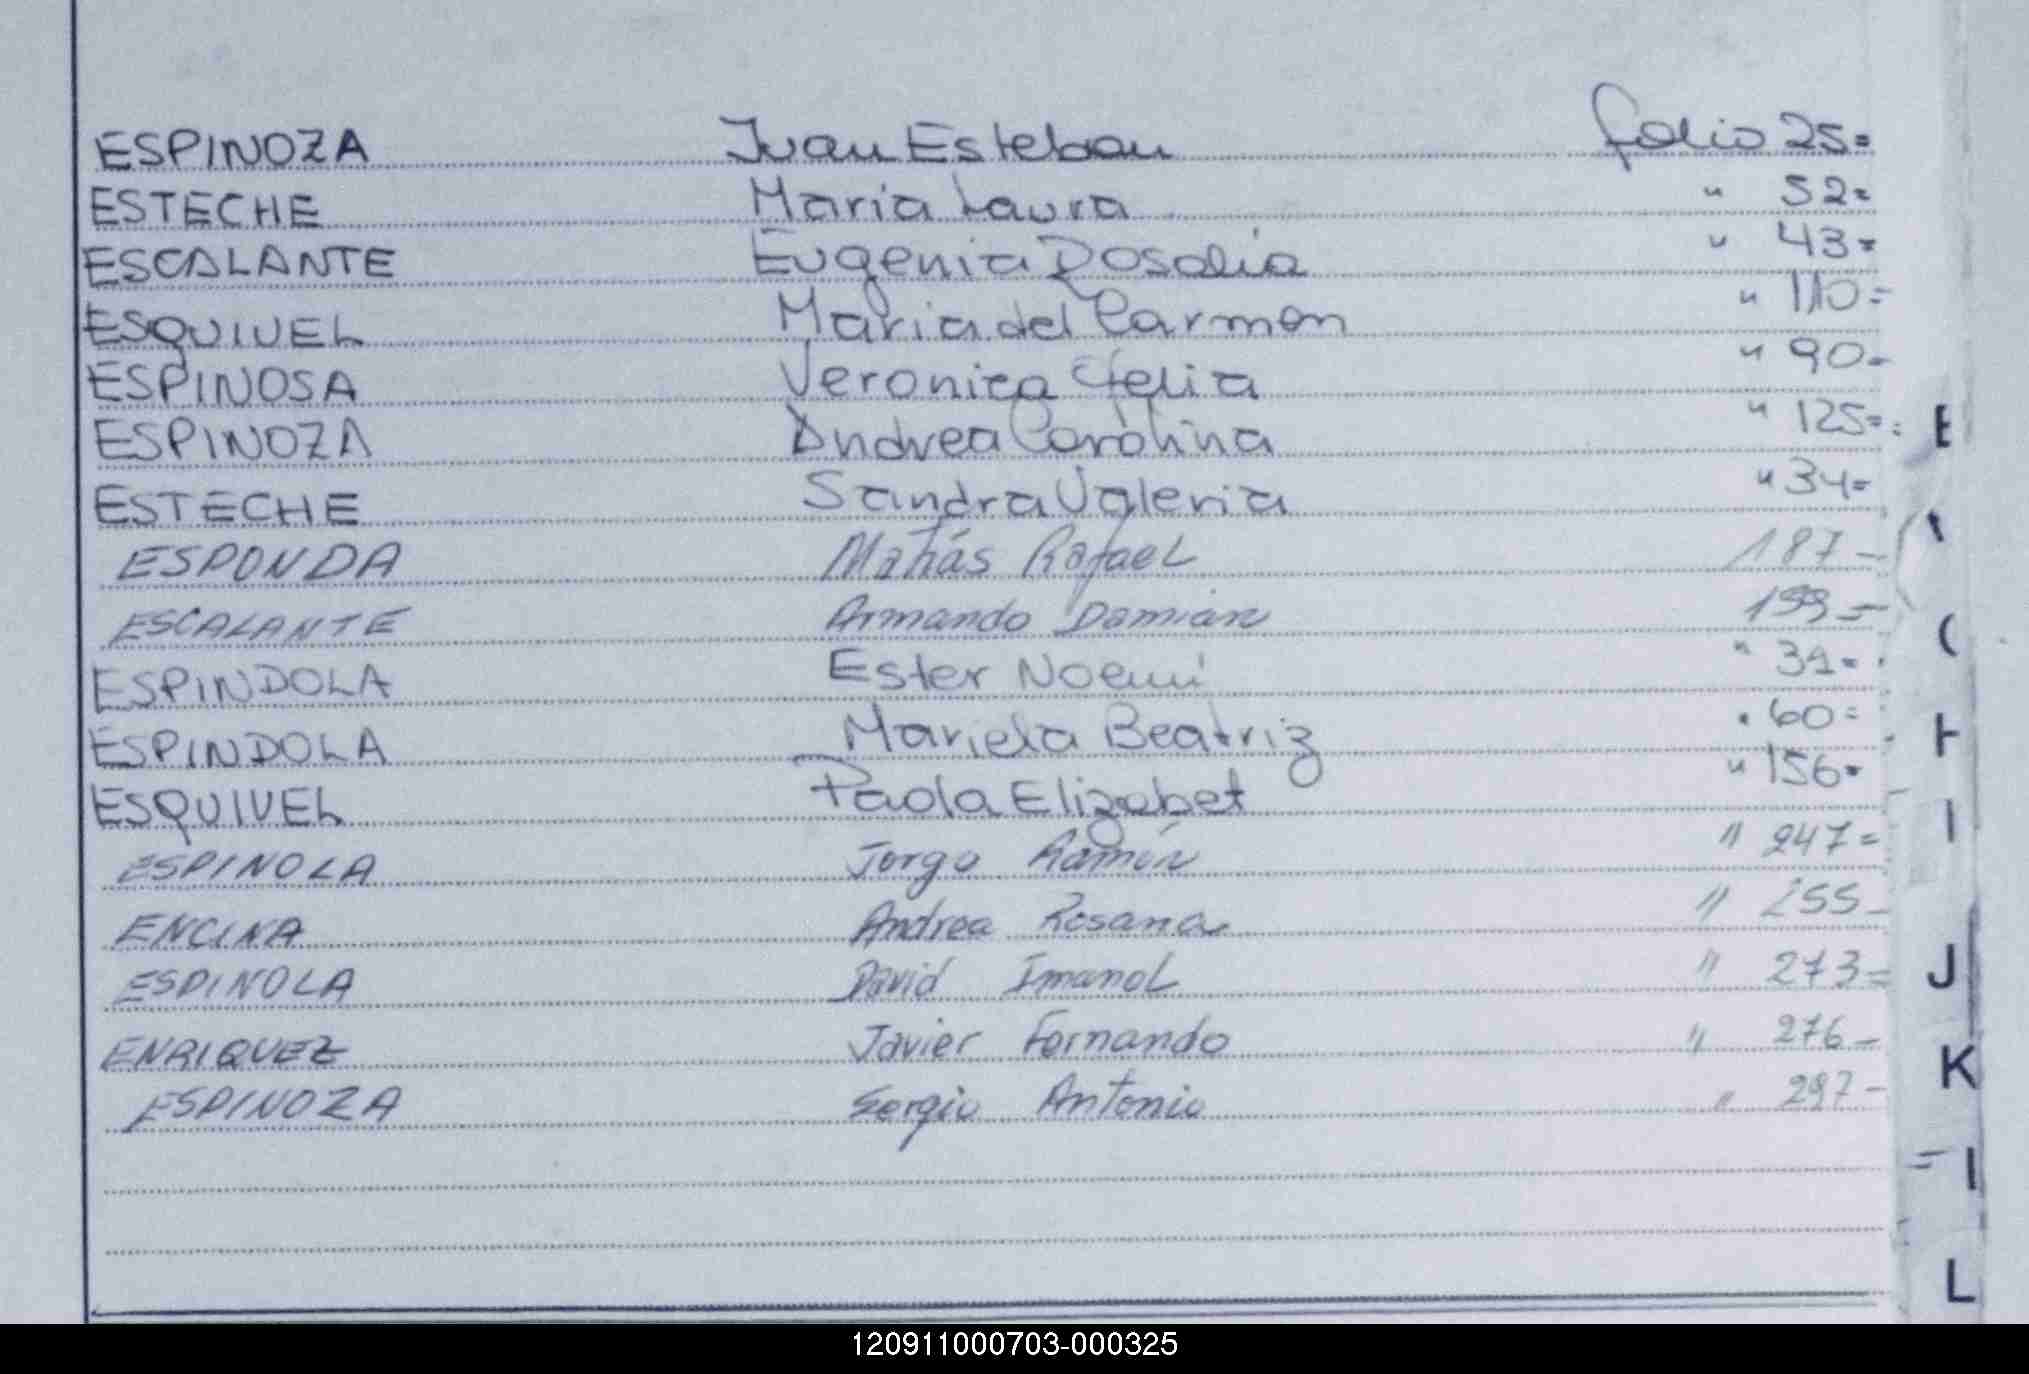 ESPINOZA Juan Esteban folio 25=
ESTECHE Maria Laura " 52=
ESCALANTE Eugenia Rosalia " 43=
ESQUIVEL Maria del Carmen " 110=
ESPINOSA Veronica Ofelia " 90=
ESPINOZA Andrea Carolina " 125=
ESTECHE Sandra Valeria " 34=
ESPONDA Matías Rafael 187-
ESCALANTE Armando Damián 199=
ESPINDOLA Ester Noemi " 31=
ESPINDOLA Mariela Beatriz " 60=
ESQUIVEL Paola Elizabet " 156=
ESPINOLA Jorge Ramón " 247=
ENCINA Andrea Rosana " 255-
ESPINOLA David Imanol " 273=
ENRIQUEZ Javier Fernando " 276-
ESPINOZA Sergio Antonio " 297-
H
I
J
K
L
120911000703-000325